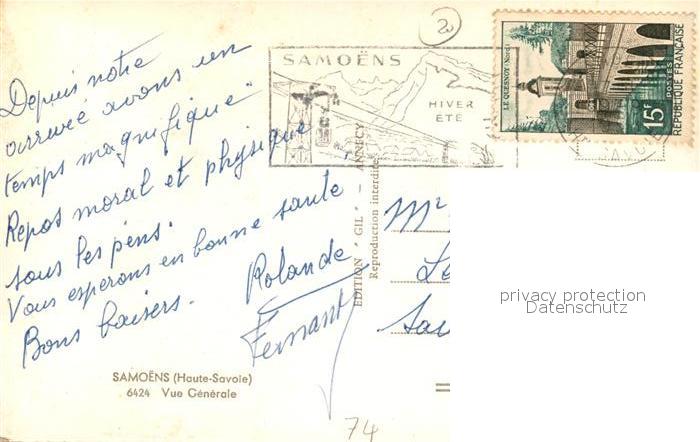 20
SAMOËNS
HIVER
ETÉ
LE QUESNOY (Nord)
15F
POSTES
REPUBLIQUE FRANÇAISE
Depuis notre
arrivée avons un
temps magnifique.
Repos moral et physique
sous les pens.
Vous esperons en bonne sante
Bons baisers.
Rolande
Fernant
EDITION "GIL" - ANNECY
Reproduction interdite
Mr
privacy protection
Datenschutz
SAMOËNS (Haute-Savoie)
6424 Vue Générale
74